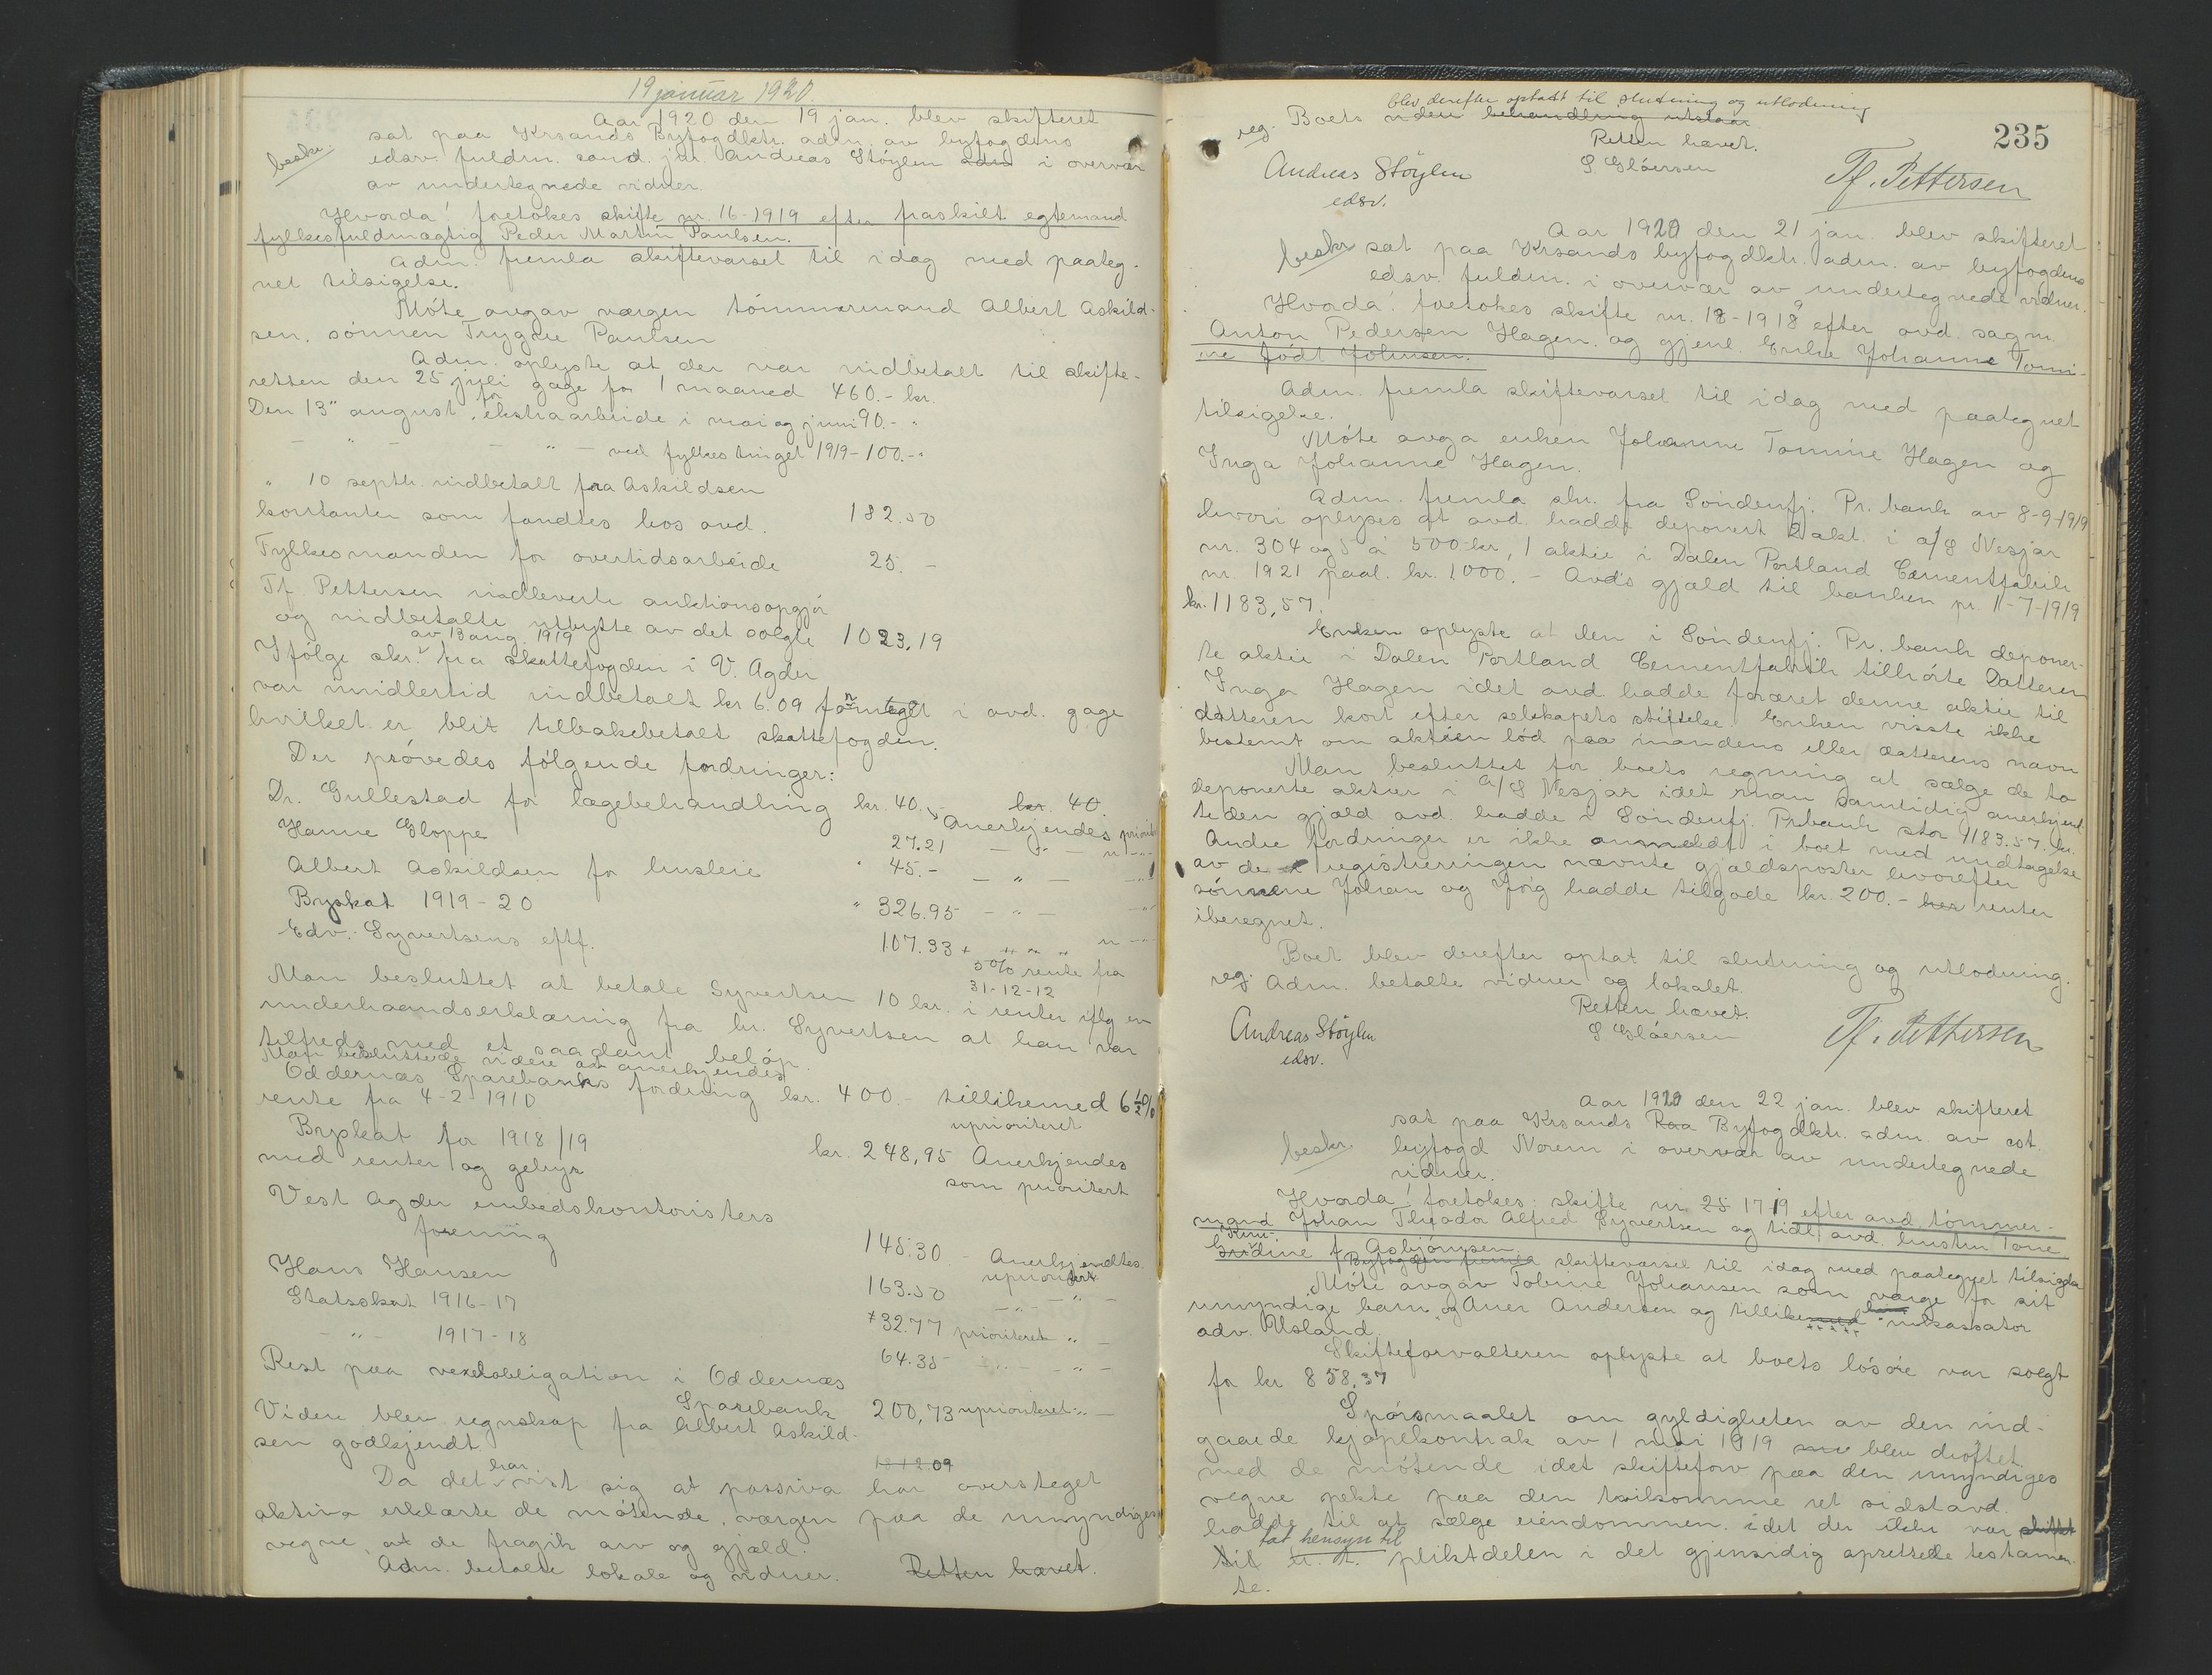 19 januar 1920.
Aar 1920 den 19 jan. blev skifteret
sat paa Krsands Byfogdktr. adm. av byfogdens
beskr.
edsv. fuldm. cand. jur. Andreas Stöylen adm i overvær
av undertegnede vidner.
Hvorda! foretokes skifte nr. 16-1919 efter fraskilt egtemand
fylkesfuldmægtig Peder Martin Paulsen.
Adm. fremla skiftevarsel til idag med paateg-
net tilsigelse.
Möte avgav vergen tömmermand Albert Askild-
sen, sönnen Trygve Paulsen
Adm. oplyste at der var indbetalt til skifte-
retten den 25 juli gage for 1 maaned 460.- kr.
Den 13" august for ekstraarbeide i mai og juni 90.- "
- " - - " - ved fylkestinget 1919 - 100.- "
" 10 septbr. indbetalt fra Askildsen
kontanter som fandtes hos avd. 182.50
Fylkesmanden for overtidsarbeide 25.-
Tf Pettersen indleverte auktionsopgjör
og indbetalte utbytte av det solgte 1023,19
av 13 aug. 1919
Ifölge skr. fra skattefogden i V. Agder
var imidlertid indbetalt kr 6.09 formeget i avd. gage
hvilket er blit tilbakebetalt skattefogden.
Der prövedes fölgende fordringer:
Dr. Gullestad for lægebehandling kr. 40.- kr. 40.
Anerkjendes priorit
Hanne Gloppe 27.21 - " - u - " -
Albert Askildsen for husleie " 45.- - " - - " -
Byskat 1919-20 " 326.95 - " - - " -
Edv. Syvertsens eftf. 107.33 + " " " u - " -
5% rente fra
31-12-12
Man besluttet at betale Syvertsen 10 kr. i renter iflg en
underhaandserklæring fra hr. Syvertsen at han var
tilfreds med et saadant belöp.
Man besluttede videre at anerkjendes
Oddernæs Sparebanks fordring kr. 400.- tillikemed 6 1/2 %
rente fra 4-2-1910
uprioritert
Byskat for 1918/19
med renter og gebyr kr. 248,95 Anerkjendes
som prioritert
Vest Agder embedskontoristers
forening 145.30 - Anerkjendtes
uprioritert
Hans Hansen 163.50 - " - " -
Statsskat 1916-17 *32.77 prioritert " -
- " - 1917-18 64.35 - " - " -
Rest paa vexelobligation i Oddernæs
Sparebank 200,73 uprioritert " -
Videre blev regnskap fra Albert Askild-
sen godkjendt
Da det har vist sig at passiva har oversteget
aktiva erklærte de mötende, vergen paa de umyndiges
vegne, at de fragik arv og gjæld.
Adm. betalte lokale og vidner. Retten hævet.
235
blev derefter optatt til slutning og utlodning
reg. Boets videre behandling utstaar
Retten hævet.
Andreas Stöylen S Glöersen Tf. Pettersen
edsv.
Aar 1920 den 21 jan. blev skifteret
beskr sat paa Krsands byfogdktr. adm. av byfogdens
edsv. fuldm. i overvær av undertegnede vidner.
Hvorda! foretokes skifte nr. 18-1919 efter avd. sagm.
Anton Pedersen Hagen og gjenl. Enke Johanne Tomi-
ne födt Johnsen.
Adm. fremla skiftevarsel til idag med paategnet
tilsigelse.
Möte avga enken Johanne Tomine Hagen og
Inga Johanne Hagen.
Adm. fremla skr. fra Söndenfj. Pr. bank av 8-9-1919
hvori oplyses at avd. hadde deponert 2 akt. i A/S Nesjar
nr. 304 og 5 a 500 kr, 1 aktie i Dalen Portland Cementfabrik
nr. 1921 paal. kr. 1000.- Avds gjæld til banken pr. 11-7-1919
kr. 1183,57.
Enken oplyste at den i Söndenfj. Pr. bank deponer-
te aktie i Dalen Portland Cementfabrik tilhörte Datteren
Inga Hagen idet avd. hadde foræret denne aktie til
datteren kort efter selskapets stiftelse. Enken visste ikke
bestemt om aktien löd paa mandens eller datterens navn
Man besluttet for boets regning at sælge de to
deponerte aktier i A/S Nesjar idet man samtidig anerkjend-
te den gjæld avd. hadde i Söndenfj. Prbank stor 1183.57. kr.
Andre fordringer er ikke anmeldt i boet med undtagelse
av de i registreringen nævnte gjældsposter hvorefter
sönnene Johan og Jörg hadde tilgode kr. 200.- her renter
iberegnet.
Boet blev derefter optat til slutning og utlodning.
reg. Adm. betalte vidner og lokalet.
Retten hævet.
Andreas Stöylen S Glöersen Tf. Pettersen
edsv.
Aar 1920 den 22 jan. blev skifteret
sat paa Krsands Raa Byfogdktr. adm. av cst.
beskr. byfogd Norem i overvær av undertegnede
vidner.
Hvorda! foretokes skifte nr. 25 1719 efter avd. tömmer-
mand Johan Theodor Alfred Syvertsen og tidl. avd. hustru Tone
Asbjörnsen
Byfogden fremla skiftevarsel til idag med paategnet tilsigelse
Möte avgav Tobine Johansen som verge for sit
umyndige barn, og Aner Andersen og tillikemed inkassator
adv. Usland.
Skifteforvalteren oplyste at boets lösöre var solgt
for kr 858,37
Spörsmaalet om gyldigheten av den ind-
gaaede kjöpekontrak av 1 mai 1919 blev dröftet
med de mötende idet skifteforv paa den umyndiges
vegne pekte paa den tvilsomme ret sidstavd.
hadde til at sælge eiendommen, idet der ikke var skiftet
tat hensyn til
til pliktdelen i det gjensidig oprettede testamen-
te.